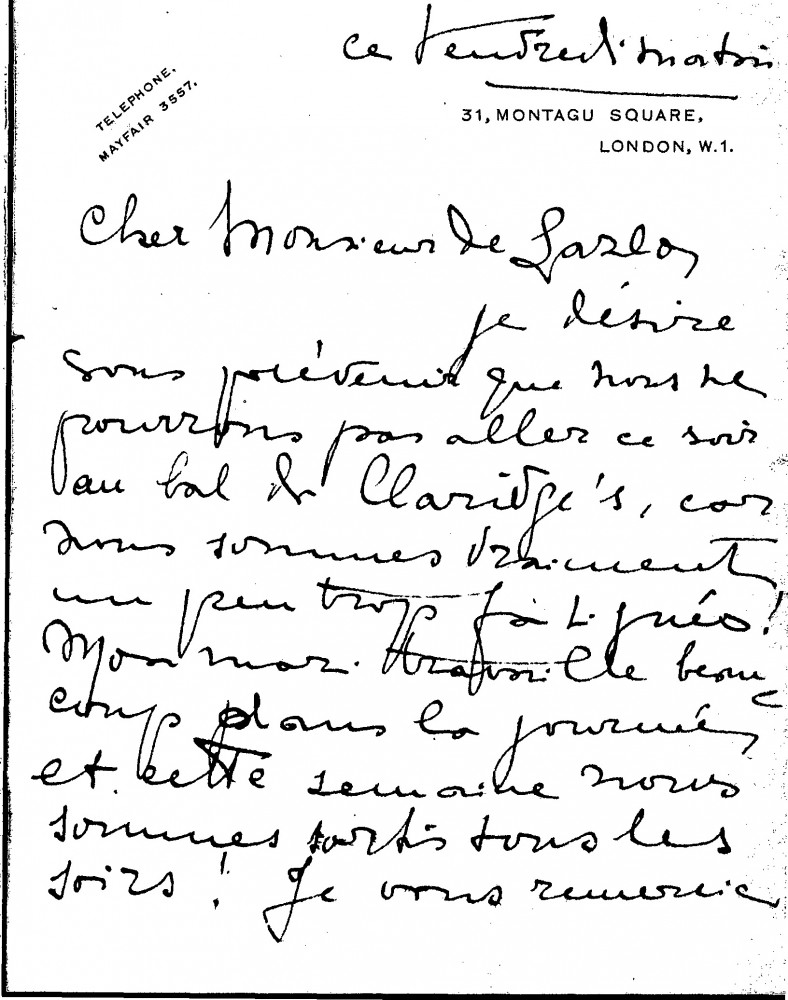 ce Vendredi matin
TELEPHONE.
MAYFAIR 3557.
31, MONTAGU SQUARE,
LONDON, W.1.
Cher Monsieur de Laszlo,
je désire
vous prévenir que nous ne
pourrons pas aller ce soir
au bal du Claridge's, car
nous sommes vraiment
un peu trop fatigués!
Mon mari travaille beau
coup dans la journée,
et cette semaine nous
sommes sortis tous les
soirs! Je vous remercie